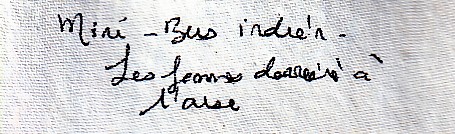 Mini - Bus indien -
Les femmes derrière à
l'aise